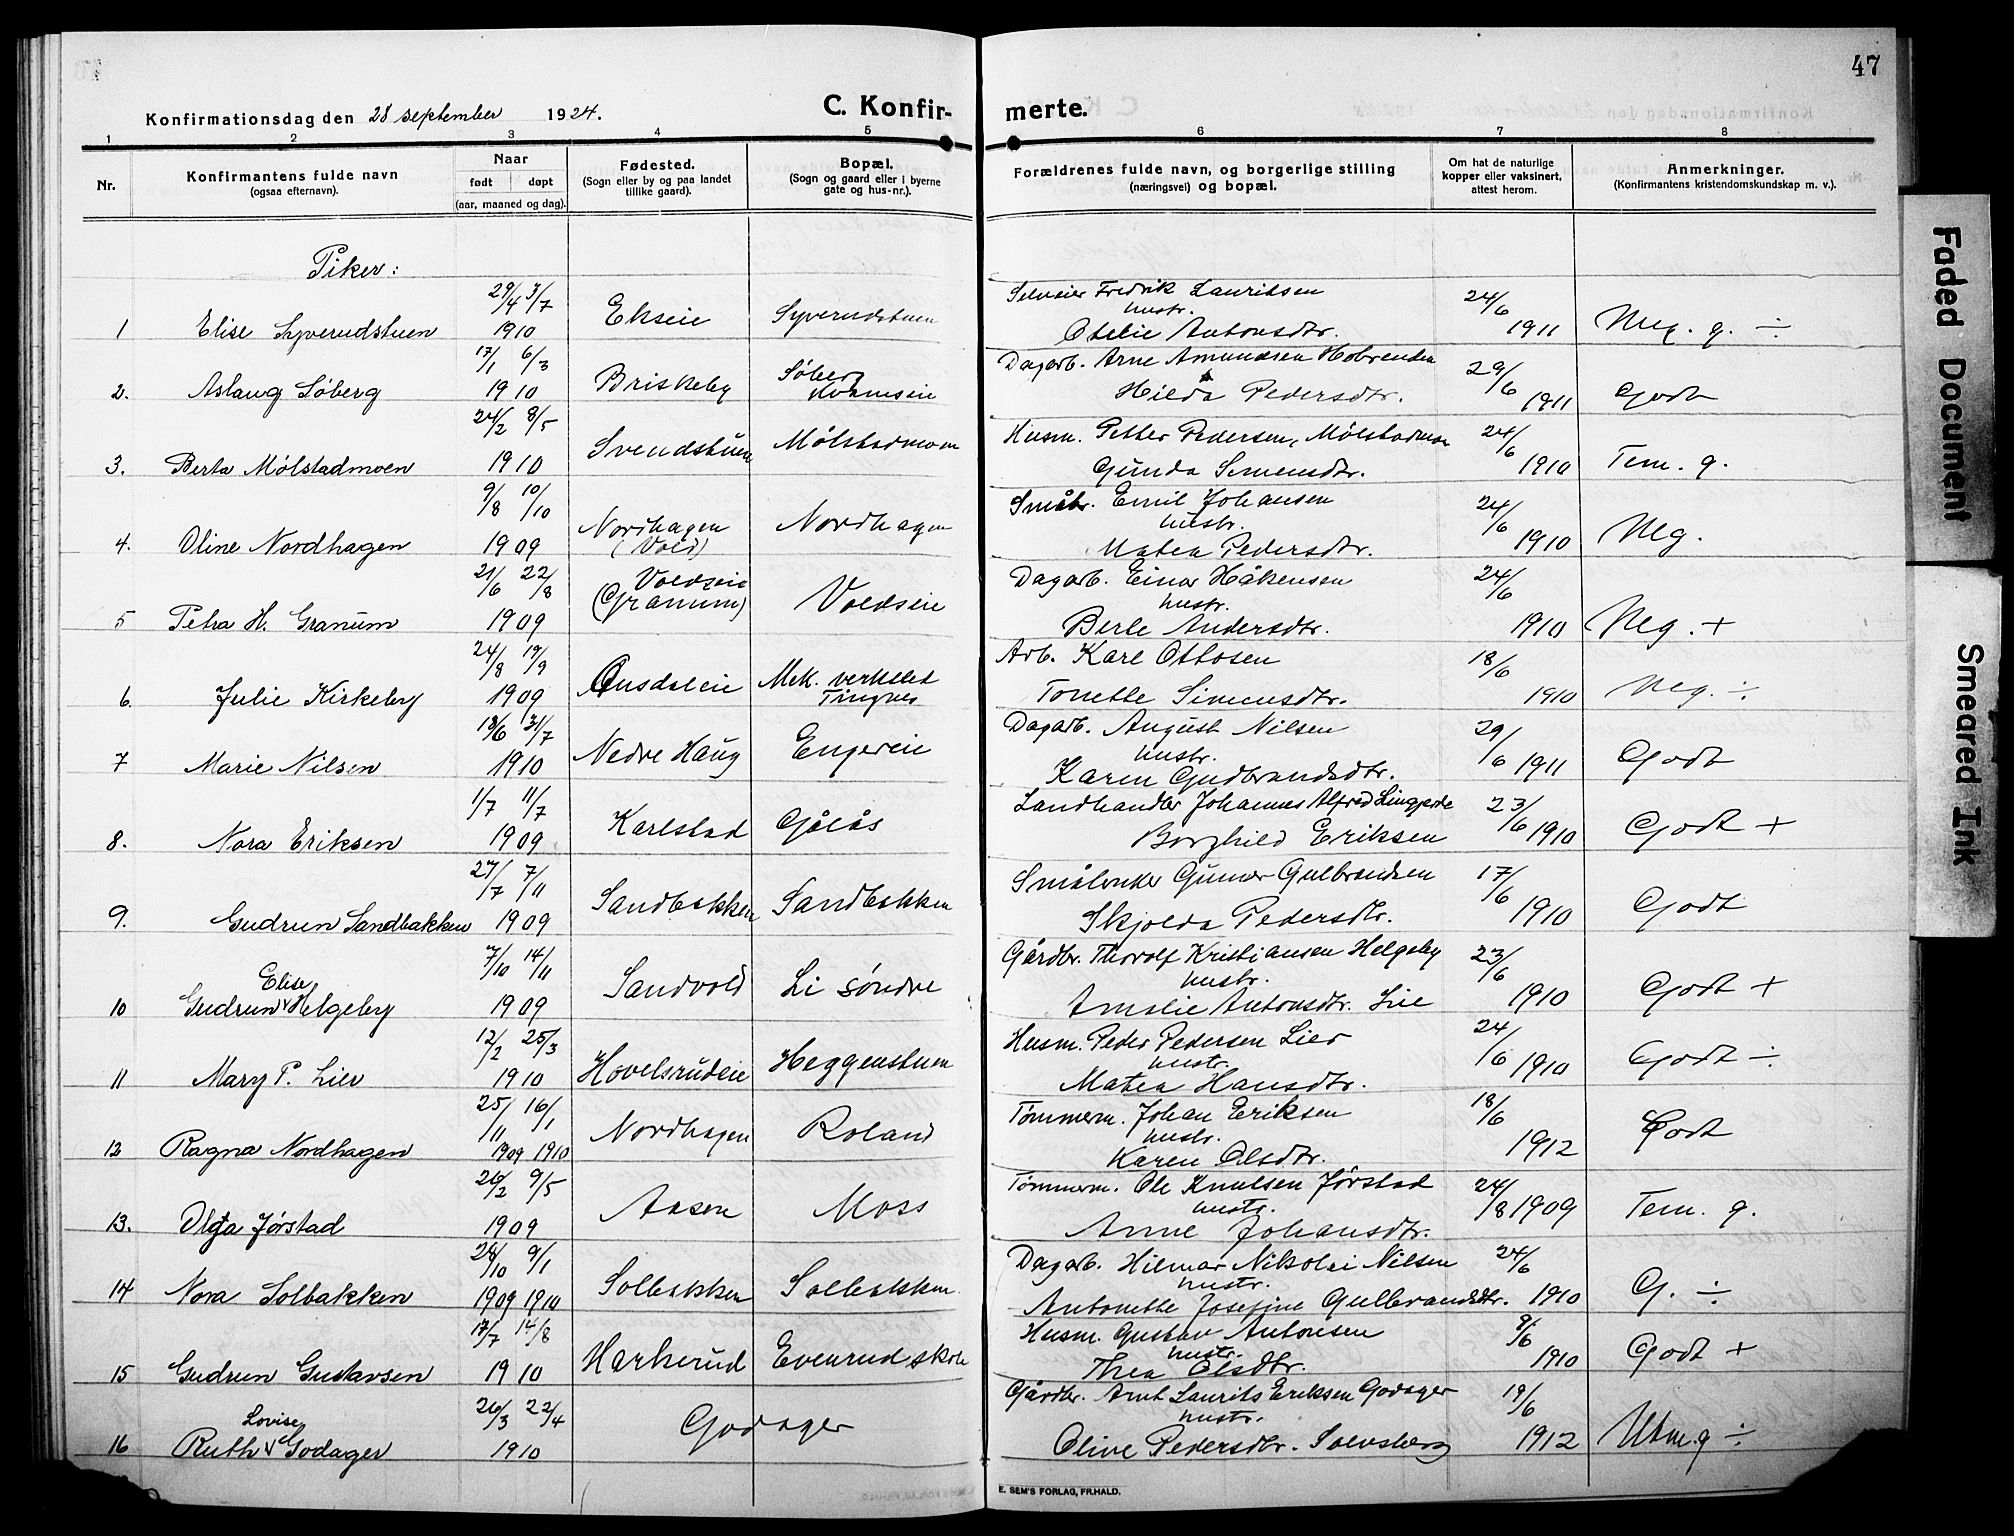 47
Konfirmationsdag den 28 september 1924.
C. Konfir-merte.
1 2 3 4 5 6 7 8
Nr.
Konfirmantens fulde navn
(ogsaa efternavn).
Naar
født døpt
(aar, maaned og dag).
Fødested.
(Sogn eller by og paa landet
tillike gaard).
Bopæl.
(Sogn og gaard eller i byerne
gate og hus-nr.).
Forældrenes fulde navn, og borgerlige stilling
(næringsvei) og bopæl.
Om hat de naturlige
kopper eller vaksinert,
attest herom.
Anmerkninger.
(Konfirmantens kristendomskundskap m. v.).
Piker:
29/4 3/7 Selveier Fredrik Lauritsen 24/6
1 Elise Syverudstuen 1910 Ekseie Syverudstuen hustr. Otelie Antonsdtr. 1911 Meg. g. ÷
17/1 6/3 Dagarb. Arne Amundsen 29/6
2. Aslaug Søberg 1910 Briskeby Søberg Hilda Pedersdtr. 1911 Godt
24/2 8/5 Husm. Petter Pedersen, Mølstadmoen 24/6
3. Berta Mølstadmoen 1910 Svendstuen Mølstadmoen Gunda Simensdtr. 1910 Tem. g.
9/8 10/10 Småbr. Emil Johansen 24/6
4. Oline Nordhagen 1909 Nordhagen (Vold) Nordhagen hustr. Matea Pedersdtr. 1910 Meg.
21/6 22/8 Dagarb. Einar Håkensen 24/6
5 Petra H. Granum 1909 Voldseie (Granum) Voldseie hustr. Berte Andersdtr. 1910 Meg. +
24/8 19/9 Arb. Karl Ottosen 18/6
6. Julie Kirkeby 1909 Mek. verksted Tingnes Tonette Simensdtr. 1910 Meg. ÷
18/6 31/7 Dagarb. August Nilsen 29/6
7 Marie Nilsen 1910 Nedre Haug Engereie hustr. Karen Gudbrandsdtr. 1911 Godt
1/7 11/7 Landhandler Johannes Alfred 23/6
8. Nora Eriksen 1909 Karlstad Gålås Borghild Eriksen 1910 Godt +
27/7 7/11 Gunnar Gulbrandsen 17/6
9. Gudrun Sandbakken 1909 Sandbakken Sandbakken Skjolda Pedersdtr. 1910 Godt
7/10 14/11 Gårdbr. Thorolf Kristiansen Helgeby 23/6
10 Gudrun Elise Helgeby 1909 Sandvold Li søndre hustr. Amalie Antonsdtr. Lie 1910 Godt +
12/2 25/3 Husm. Peder Pedersen Lier 24/6
11 Mary P. Lier 1910 Hovelsrudeie Heggenstuen hustr. Matea Hansdtr. 1910 Godt ÷
25/11 16/1 Tømmerm. Johan Eriksen 18/6
12 Ragna Nordhagen 1909 1910 Nordhagen Roland hustr. Karen Olsdtr. 1912 Godt
26/2 9/5 Tømmerm. Ole Knutsen Jørstad 24/8
13. Olga Jørstad 1909 Aasen Moss hustr. Anne Johansdtr. 1909 Tem. g.
28/10 9/1 Dagarb. Hilmar Nikolai Nilsen 24/6
14 Nora Solbakken 1909 1910 Solbakken Solbakken hustr. Antonette Josefine Gulbrandsdtr. 1910 G. ÷
17/7 14/8 Husm. Gustav Antonsen 9/6
15 Gudrun Gustavsen 1910 Harkerud Evenrud skole hustr. Thea Olsdtr. 1910 Godt +
26/3 22/4 Gårdbr. Arnt Laurits Eriksen Godager 19/6
16 Ruth Lovise Godager 1910 Godager hustr. Olive Pedersdtr. Solvsberg 1912 Utm. g ÷
E. SEM'S FORLAG, FR.HALD.
Faded Document
Smeared Ink